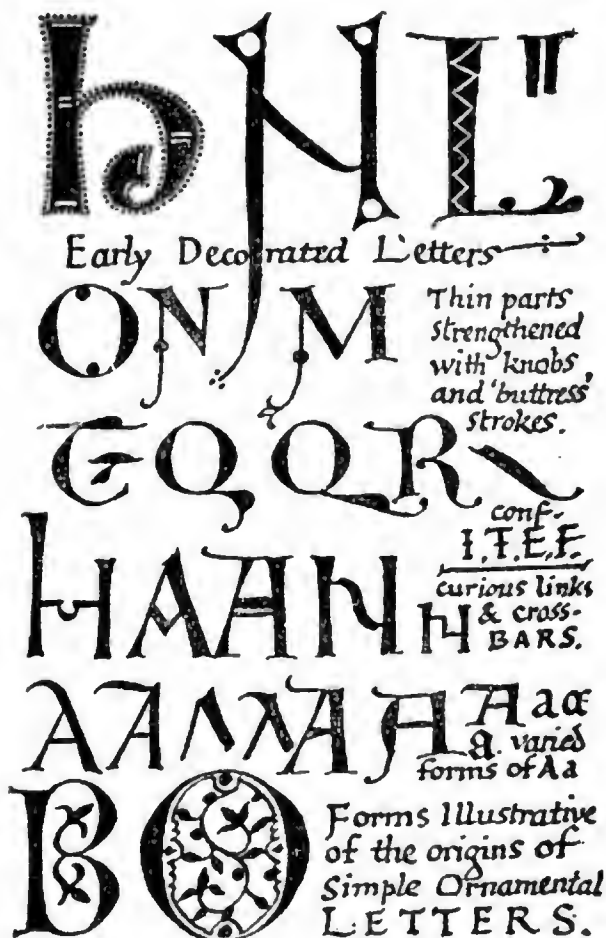 h N L
Early Decorated Letters
O N M
Thin parts
strengthened
with knobs,
and 'buttress'
strokes.
E Q Q R
conf-
I.T.E.F.
H A A N H
curious links
& cross-
BARS.
A A A A A A A a α
a varied
forms of A a
B O
Forms Illustrative
of the origins of
Simple Ornamental
LETTERS.